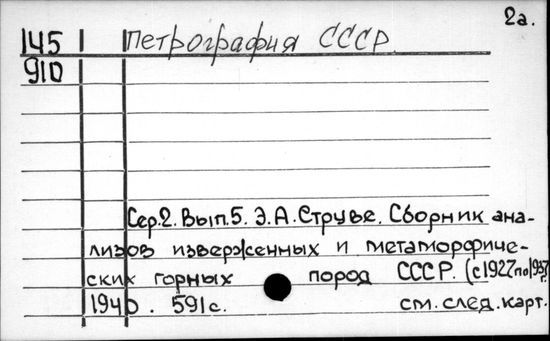 2а.
145 Петрография СССР.
910
Сер.2. Вып.5. Э.А.Струве. Сборник ана-
лизов изверженных и метаморфиче-
ских горных пород СССР. (с 1927 по 1937 г.
1940. 591с. см. след. карт.